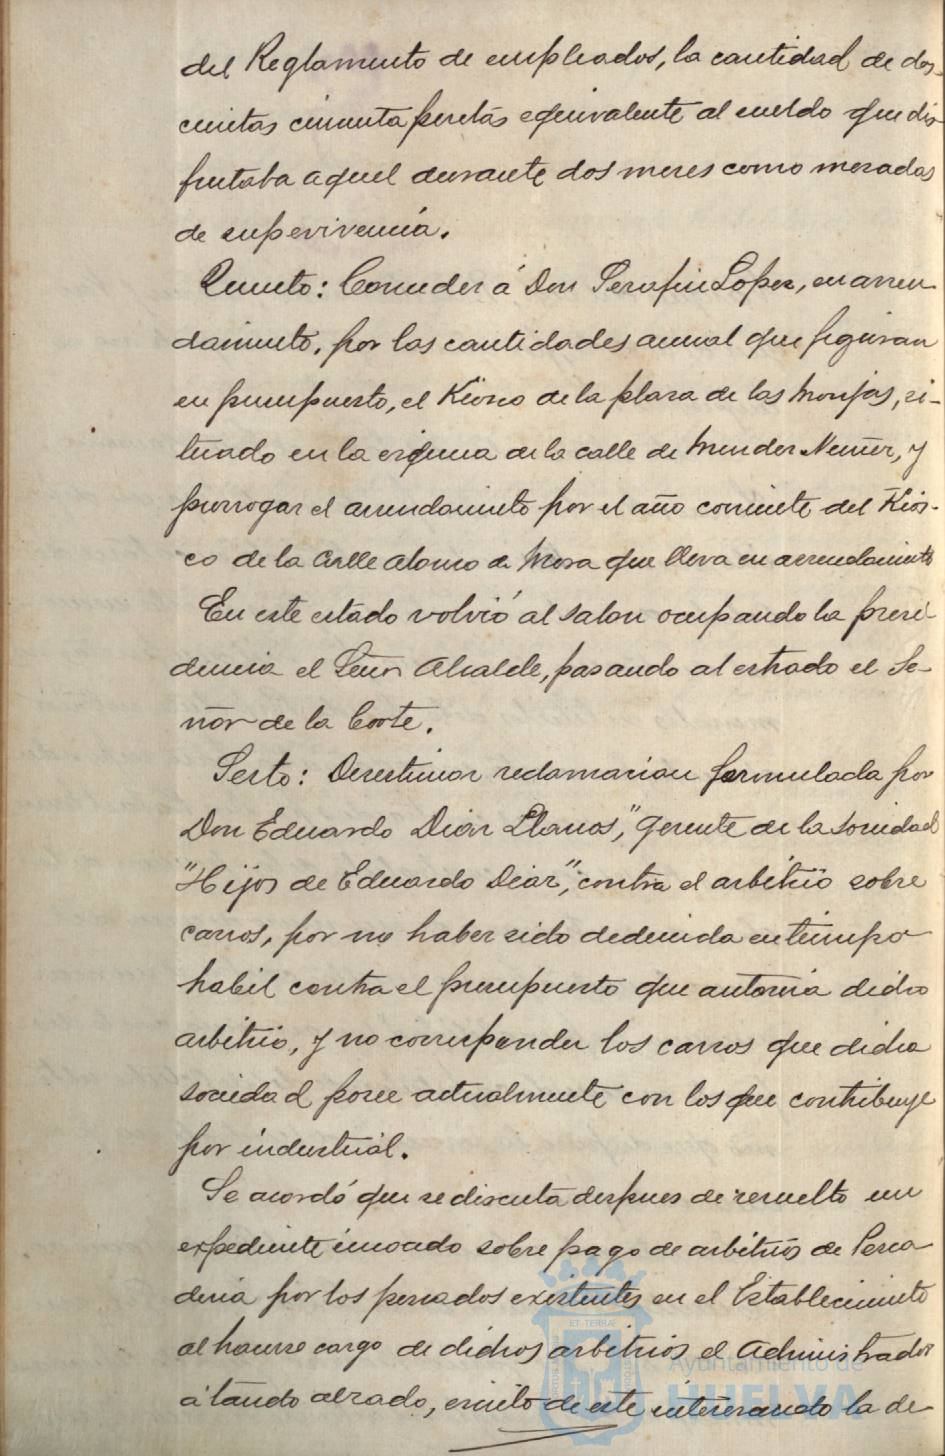 del Reglamento de empleados, la cantidad de dos-
cientas cincuenta pesetas equivalente al sueldo que dis
frutaba aquel durante dos meses como mesadas
de supervivencia.
Quinto: Conceder á Don Serafin Lopez, en arren
damiento, por las cantidades anual que figuran
en presupuesto, el Kiosco de la plaza de las Monjas, si-
tuado en la esquina de la calle de Mendez Nuñez, y
prorrogar el arrendamiento por el año corriente del Kios-
co de la Calle Alonso de Mora que lleva en arrendamiento
En este estado volvió al salon ocupando la presi
dencia el Señor Alcalde, pasando al estrado el Se-
ñor de la Corte.
Sesto: Desestimar reclamacion formulada por
Don Eduardo Diaz Llanos, "gerente de la sociedad
"Hijos de Eduardo Diaz", contra el arbitrio sobre
carros, por no haber sido deducida en tiempo
habil contra el presupuesto que autoriza dicho
arbitrio, y no corresponder los carros que dicha
sociedad posee actualmente con los que contribuye
por industrial.
Se acordó que se discuta despues de resuelto un
expediente incoado sobre pago de arbitrios de Pesca
deria por los pescados existentes en el Establecimiento
al hacerse cargo de dichos arbitrios el Administrador
á tando alzado, escrito de este interesando la de
ET TERRÆ
Ayuntamiento de
HUELVA